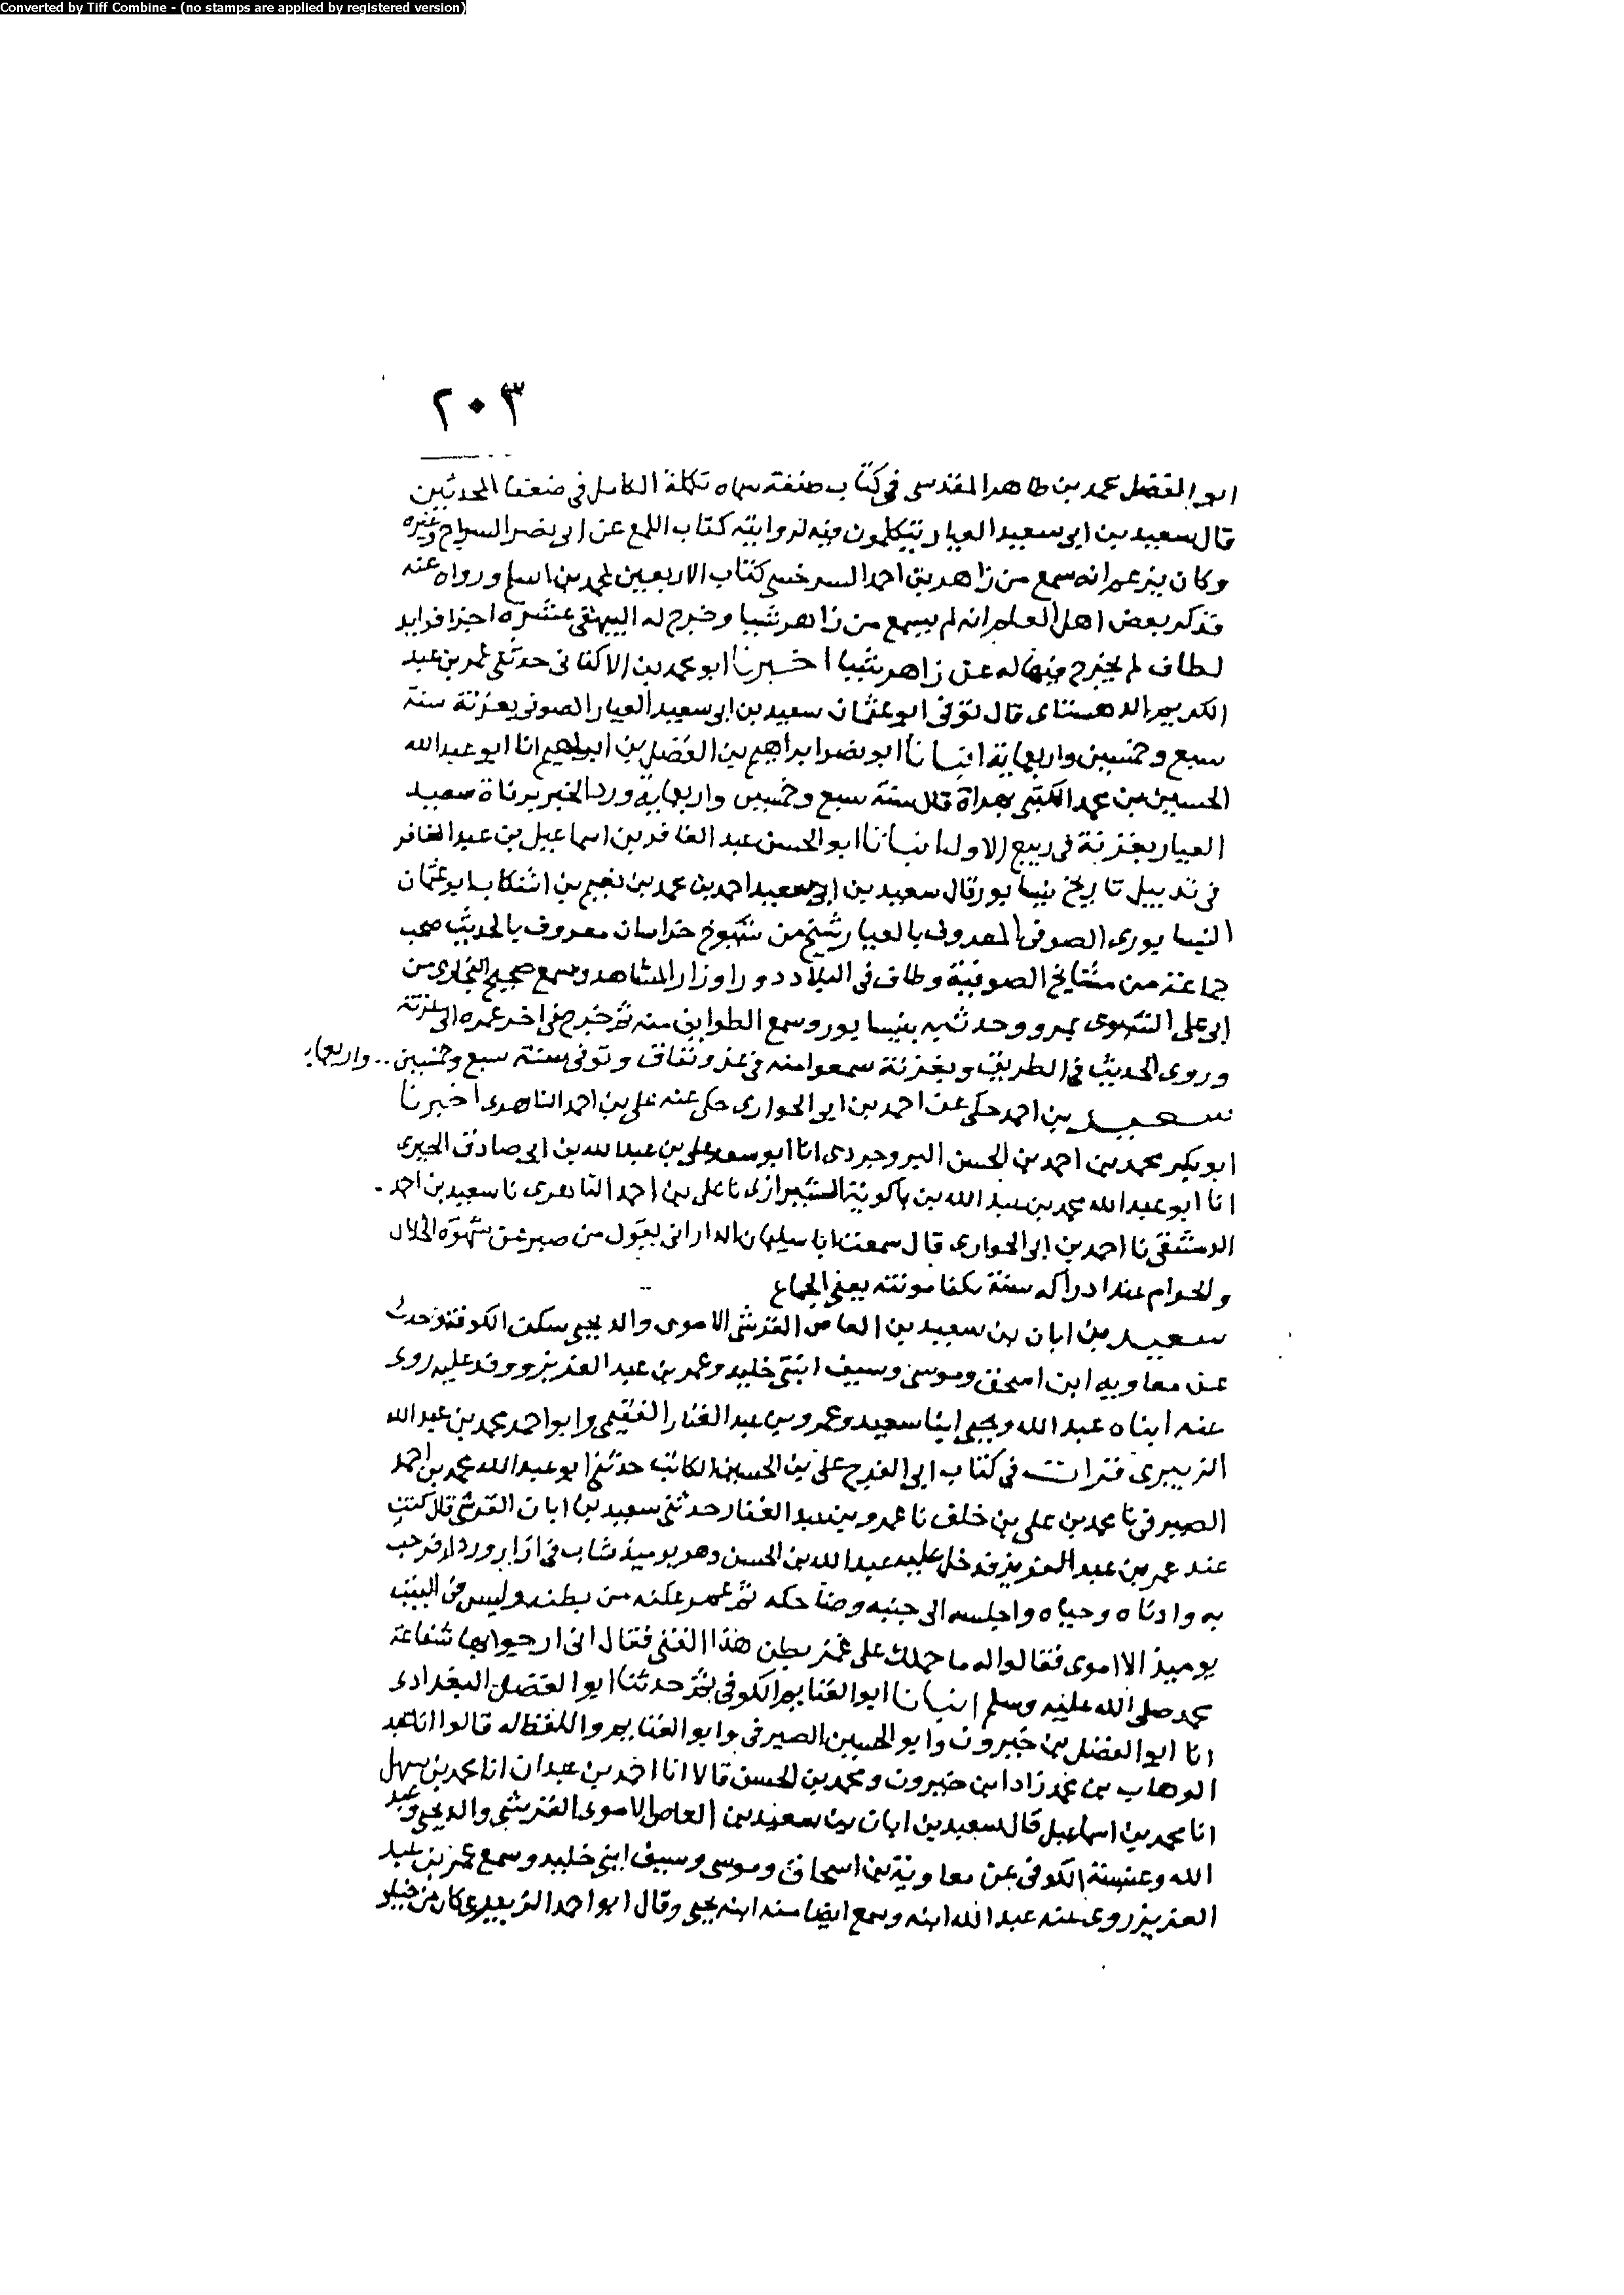 Converted by Tiff Combine - (no stamps are applied by registered version)
٢٠٣
ابو الفضل محمد بن طاهر المقدسي في كتاب صنفه سماه تكملة الكامل في ضعفا المحدثين
قال سعيد بن ابي سعيد العيار يتكلمون فيه لروايته كتاب اللمع عن ابي نصر السراج وغيره
وكان يزعم انه سمع من زاهر بن احمد السرخسي كتاب الاربعين لمحمد بن اسلم ورواه عنه
فذكر بعض اهل العلم انه لم يسمع من زاهر شيا وخرج له البيهقي عشرة اجزا فرايد
لطاف لم يخرج فيها له عن زاهر شيا اخبرنا ابو محمد بن الاكفاني حدثني عمر بن عبد
الكريم الدهستاني قال توفي ابو عثمان سعيد بن ابي سعيد العيار الصوفي بغزنة سنة
سبع وخمسين واربعماية انبانا ابو نصر ابراهيم بن الفضل بن ابراهيم انا ابو عبد الله
الحسين بن محمد الكتبي بهراة قال سنة سبع وخمسين واربعماية ورد الخبر بوفاة سعيد
العيار بغزنة في ربيع الاول انبانا ابو الحسن عبد الغافر بن اسماعيل بن عبد الغافر
في تذييل تاريخ نيسابور قال سعيد بن ابي سعيد احمد بن محمد بن نعيم بن اشكاب ابو عثمان
النيسابوري الصوفي المعروف بالعيار شيخ من شيوخ خراسان معروف بالحديث صحب
جماعة من مشايخ الصوفية وطاف في البلاد دورا وزار المشاهد وسمع صحيح البخاري من
ابي علي الشبوي بمرو وحدث به بنيسابور وسمع الطوايف منه ثم خرج في اخر عمره الى غزنة
وروى الحديث في الطريق وبغزنة سمعوا منه في عز ونفاق وتوفي سنة سبع وخمسين .. واربعماية
سعيد بن احمد حكى عن احمد بن ابي الحواري حكى عنه علي بن احمد الناهدي اخبرنا
ابو بكر محمد بن احمد بن الحسن البروجردي انا ابو سعد علي بن عبد الله بن ابي صادق الحيري
انا ابو عبد الله محمد بن عبد الله بن باكوية الشيرازي نا علي بن احمد الناهدي نا سعيد بن احمد
الدمشقي نا احمد بن ابي الحواري قال سمعت ابا سليمان الداراني يقول من صبر عن شهوة الحلال
والحرام عند ادراكه سنة يكفا مونته يعني الجماع
سعيد بن ابان بن سعيد بن العاص القرشي الاموي والد يحيى سكن الكوفة وحدث
عن معاويه ابن اسحق وموسى وسيف ابني خليد وعمر بن عبد العزيز ووفد عليه روى
عنه ابناه عبد الله ويحيى ابنا سعيد وعمرو بن عبد الغفار الفقيمي وابو احمد محمد بن عبد الله
الزبيري قرات في كتاب ابي الفرج علي بن الحسين الكاتب حدثني ابو عبد الله محمد بن احمد
الصيرفي نا محمد بن علي بن خلف نا عمرو بن عبد الغفار حدثني سعيد بن ابان القرشي قال كنت
عند عمر بن عبد العزيز فدخل عليه عبد الله بن الحسن وهو يوميذ شاب في ازار وردا فرحب
به وادناه وحياه واجلسه الى جنبه وضاحكه ثم غمز عكنه من بطنه وليس في البيت
يوميذ الا اموي فقالوا له ما حملك على غمز بطن هذا الفتى فقال اني ارجوا بها شفاعة
محمد صلى الله عليه وسلم انبانا ابو الغنايم الكوفي ثم حدثنا ابو الفضل البغدادي
انا ابو الفضل بن خيرون وابو الحسين الصيرفي وابو الغنايم واللفظ له قالوا انا عبد
الوهاب بن محمد زاد ابن خيرون ومحمد بن الحسن قالا انا احمد بن عبدان انا محمد بن سهل
انا محمد بن اسماعيل قال سعيد بن ابان بن سعيد بن العاص الاموي القرشي والد يحيى وعبد
الله وعنبسة الكوفي عن معاوية بن اسحاق وموسى وسيف ابني خليد وسمع عمر بن عبد
العزيز روى عنه عبد الله ابنه وسمع ايضا منه ابنه يحيى وقال ابو احمد الزبيري كان من خيار